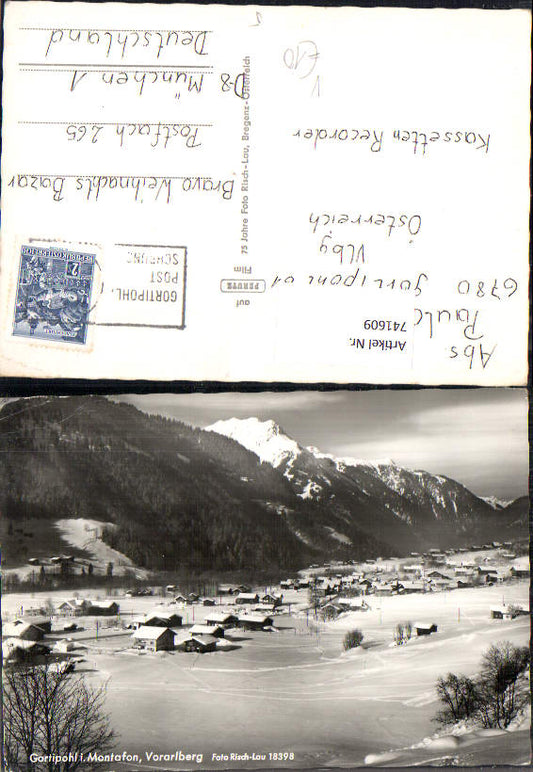 Abs
Paul
6780 Gortipohl 61
Vlbg
Österreich
Kassetten Recorder
Artikel Nr.
741609
75 Jahre Foto Risch-Lau, Bregenz-Österreich
auf
PERUTZ
Film
GORTIPOHL,
POST
SCHRUNS
2
REPUBLIK ÖSTERREICH
Bravo Weihnachts Bazar
Postfach 265
D-8 München 1
Deutschland
Gortipohl i. Montafon, Vorarlberg Foto Risch-Lau 18398